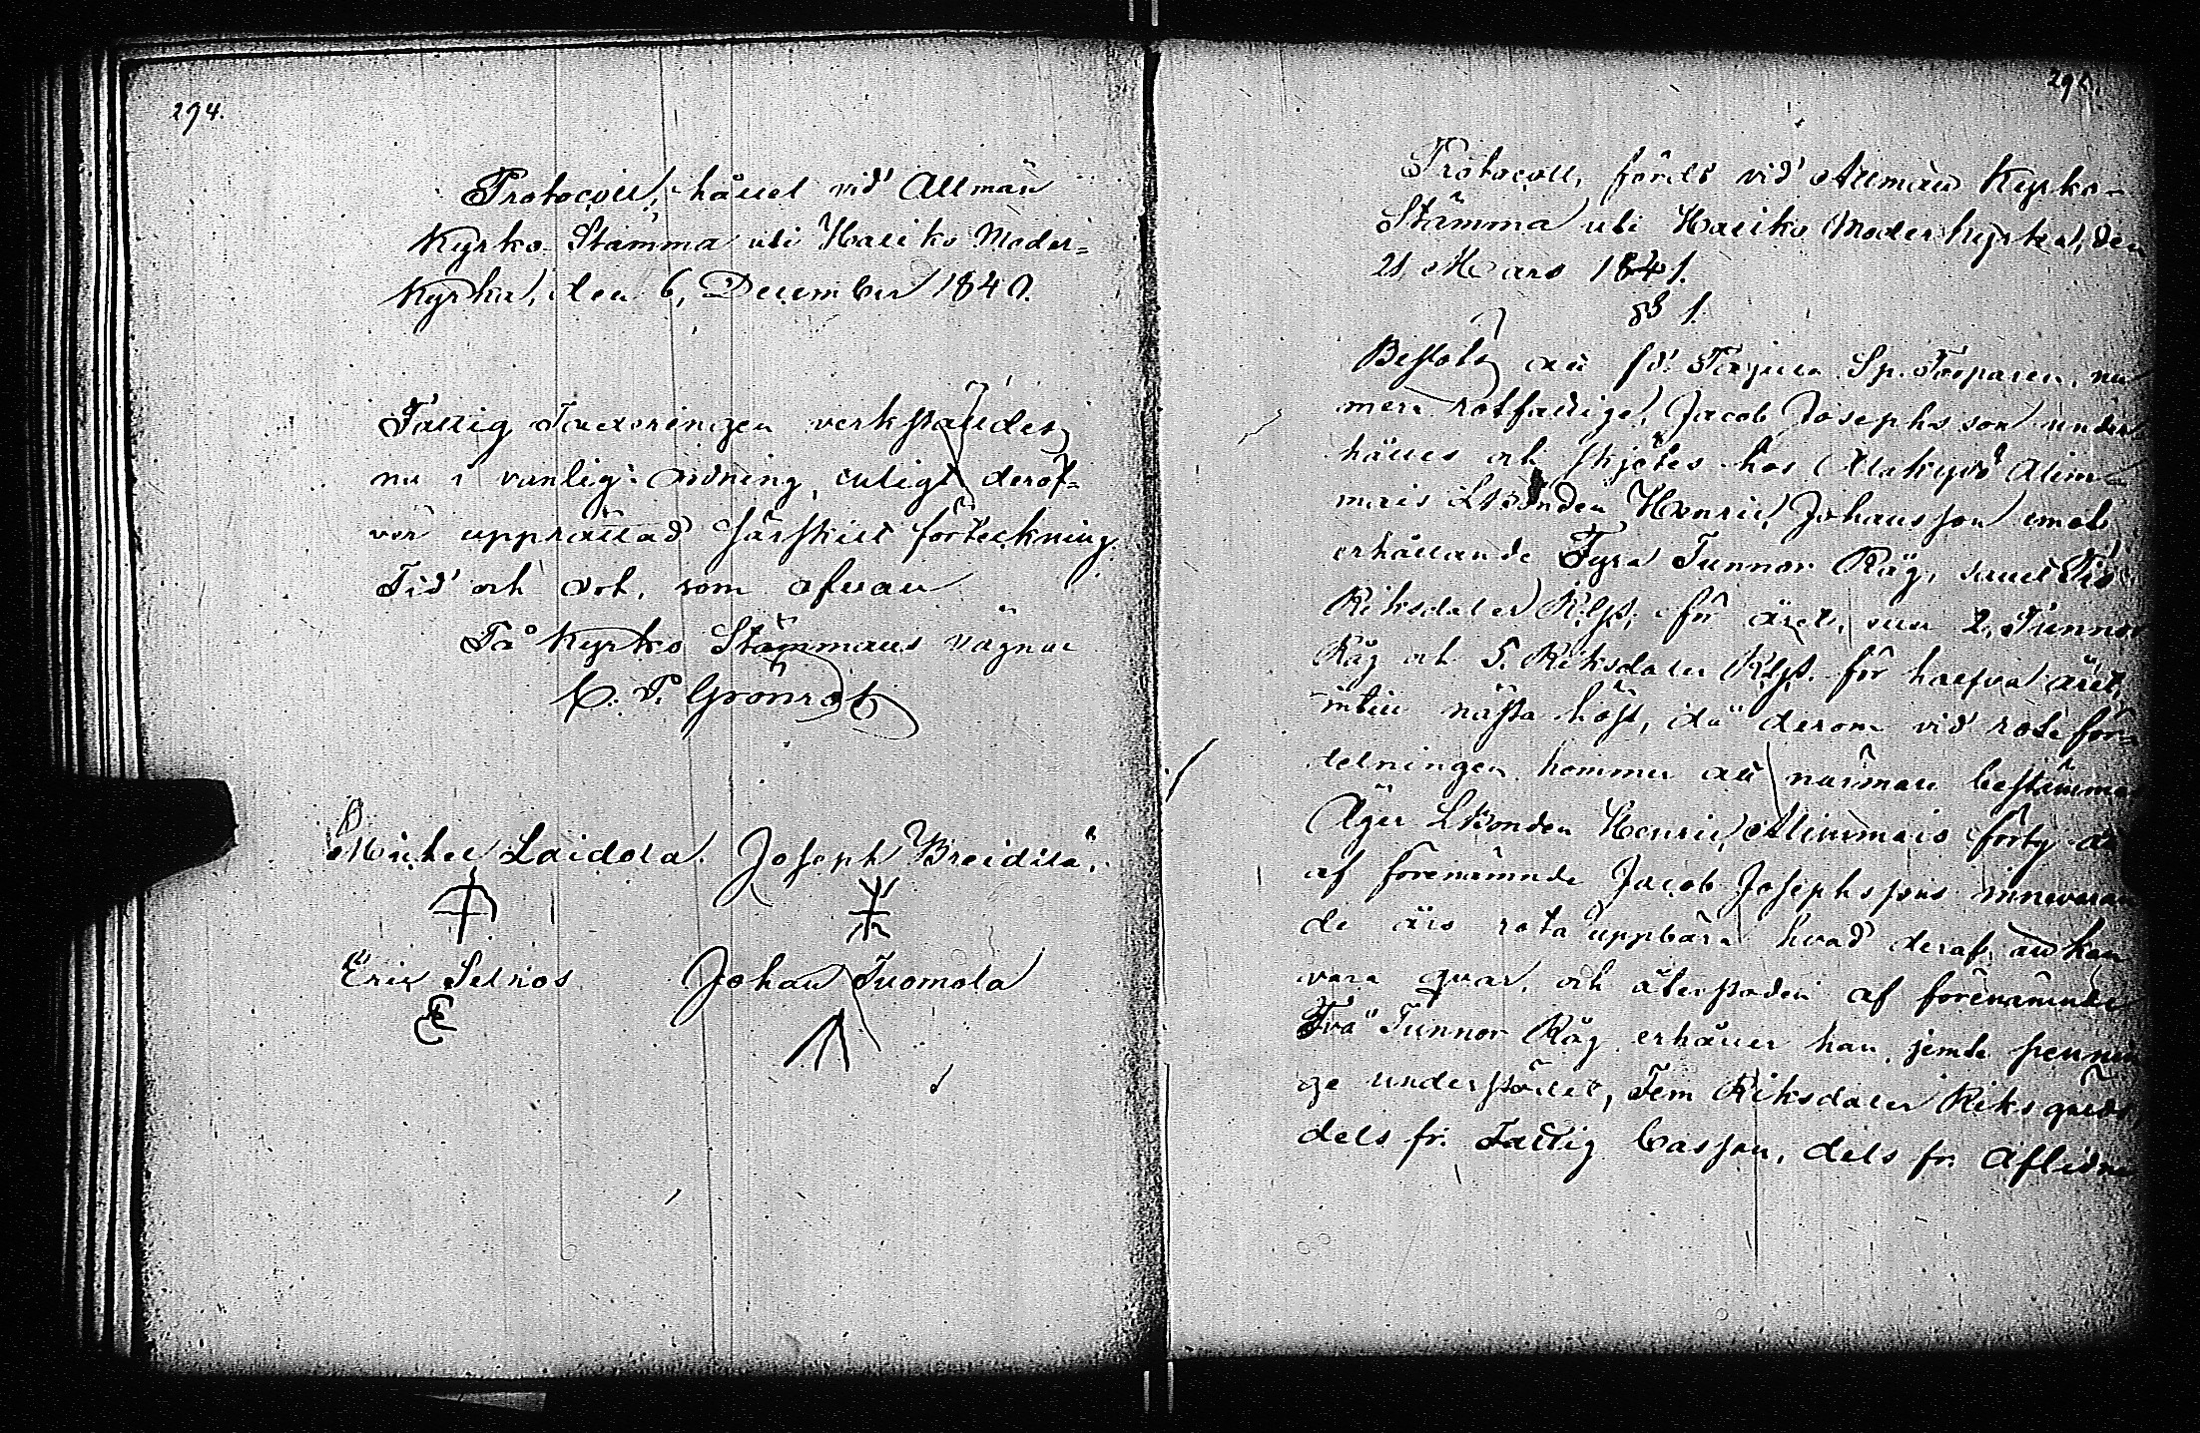 294.
Protocoll, hållet vid Allmän
Kyrko Stämma uti Halikko Moder=
Kyrka, den 6, December 1840.
Fattig Taxeringen verkställdes
nu i vanlig ordning, enligt deröf=
ver upprättad särskilt förteckning.
Tid och ort, som ofvan
På Kyrko Stämmans vägnar
Grönros
Michel Laidola. Joseph Breidilä.
Eric Johan Tuomola
295.
Protocoll, fördt vid Allmän Kyrko-
Stämma uti Halikko Moderkyrka, den
21 Mars 1841.
§ 1.
Beslöts att fd. Torparen, nu
mera rotfattige, Jacob Josephsson under
hålles och skjötes hos
Lbonden Henric Johansson emot
erhållande Fyra Tunnor Råg, samt Tio
Riksdaler Rgs, för året, eller 2, Tunnor
Råg och 5. Riksdaler Rgs. för halfva året,
intill nästa höst, då derom vid rote för=
delningen kommer att närmare bestämmas
Äger Lbonden Henric förty att
af förenämnde Jacob Josephssons innevaran
de års rota uppbära hvad deraf än kan
vara qvar, och återstoden af förenämnde
Två Tunnor Råg erhåller han, jemte pennin
ge understödet, Fem Riksdaler Riksgälds
dels fr. Fattig Cassan, dels fr. Aflidne